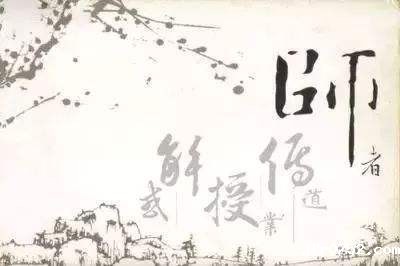 師者
傳道
授業
解惑